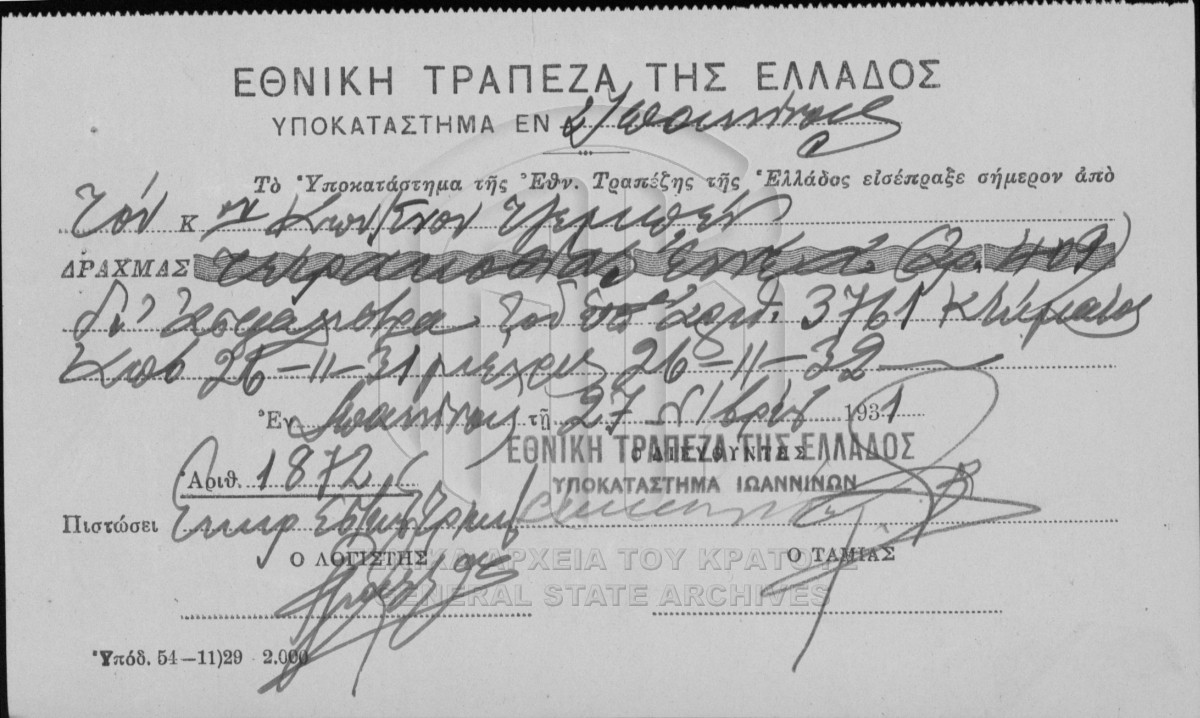 ΕΘΝΙΚΗ ΤΡΑΠΕΖΑ ΤΗΣ ΕΛΛΑΔΟΣ
ΥΠΟΚΑΤΑΣΤΗΜΑ ΕΝ
Τὸ Ὑποκατάστημα τῆς Ἐθν. Τραπέζης τῆς Ἑλλάδος εἰσέπραξε σήμερον ἀπὸ
τόν Κ
ΔΡΑΧΜΑΣ τετρακοσίας ἐννέα (Δρ. 409)
δι' ἀσφάλιστρα τοῦ ὑπ' ἀριθ. 3761 κτήματος
ἀπό 26-11-31 μέχρις 26-11-32
Ἐν τῇ 27 1931
ΕΘΝΙΚΗ ΤΡΑΠΕΖΑ ΤΗΣ ΕΛΛΑΔΟΣ
Ο ΔΙΕΥΘΥΝΤΗΣ
Ἀριθ. 1872
ΥΠΟΚΑΤΑΣΤΗΜΑ ΙΩΑΝΝΙΝΩΝ
Πιστώσει
Ο ΛΟΓΙΣΤΗΣ Ο ΤΑΜΙΑΣ
ΓΕΝΙΚΑ ΑΡΧΕΙΑ ΤΟΥ ΚΡΑΤΟΥΣ
GENERAL STATE ARCHIVES
Ὑπόδ. 54-11)29 2.000